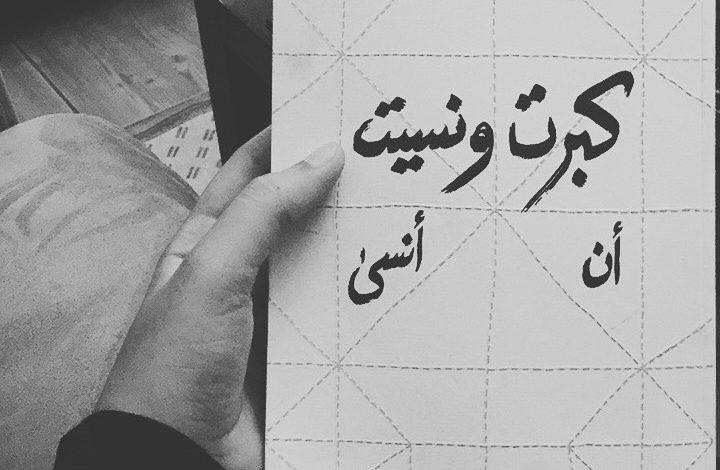 كبرت ونسيت
أن أنسىٰ